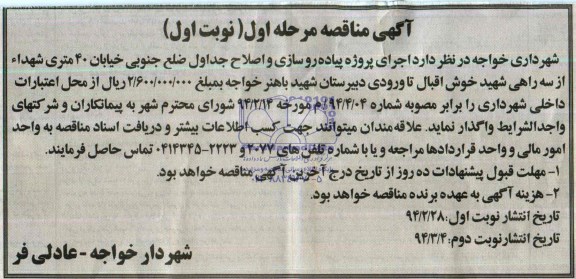 آگهی مناقصه مرحله اول( نوبت اول)
شهرداری خواجه در نظر دارد اجرای پروژه پیاده‌رو سازی و اصلاح جداول ضلع جنوبی خیابان ۴۰ متری شهداء
از سه راهی شهید خوش اقبال تا ورودی دبیرستان شهید باهنر خواجه بمبلغ ۲/۶۰۰/۰۰۰/۰۰۰ ریال از محل اعتبارات
داخلی شهرداری را برابر مصوبه شماره ۹۴/۴/۰۴/م مورخه ۹۴/۲/۱۴ شورای محترم شهر به پیمانکاران و شرکتهای
واجدالشرایط واگذار نماید. علاقه‌مندان میتوانند جهت کسب اطلاعات بیشتر و دریافت اسناد مناقصه به واحد
امور مالی و واحد قراردادها مراجعه و یا با شماره تلفن‌های ۲۰۷۷ و ۲۲۲۳-۰۴۱۴۳۴۵ تماس حاصل فرمایند.
۱- مهلت قبول پیشنهادات ده روز از تاریخ درج آخرین آگهی مناقصه خواهد بود.
۲- هزینه آگهی به عهده برنده مناقصه خواهد بود.
تاریخ انتشار نوبت اول: ۹۴/۲/۲۸
تاریخ انتشار نوبت دوم: ۹۴/۳/۴
شهردار خواجه - عادلی فر